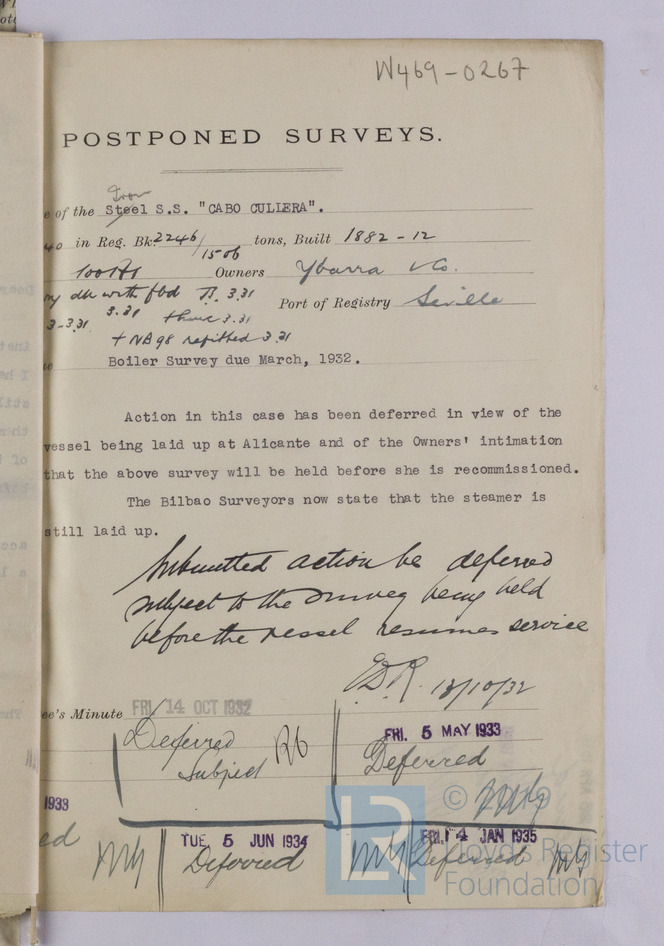 W469-0267
POSTPONED SURVEYS.
Iron
e of the Steel S.S. "CABO CULLERA".
40 in Reg. Bk. 2246/1506 tons, Built 1882-12
100A1 Owners Ybarra & Co.
with fbd 3.31 Port of Registry Seville
3-3.31 3.31 3.31
+ NB98 refitted 3.31
Boiler Survey due March, 1932.
Action in this case has been deferred in view of the
vessel being laid up at Alicante and of the Owners' intimation
that the above survey will be held before she is recommissioned.
The Bilbao Surveyors now state that the steamer is
still laid up.
Submitted action be deferred
subject to the survey being held
before the vessel resumes service
13/10/32
ee's Minute FRI. 14 OCT 1932
Deferred
Subject
FRI. 5 MAY 1933
Deferred
1933
ed
TUE. 5 JUN 1934
Deferred
FRI. 4 JAN 1935
Deferred
© 
LR
Lloyd's Register
Foundation